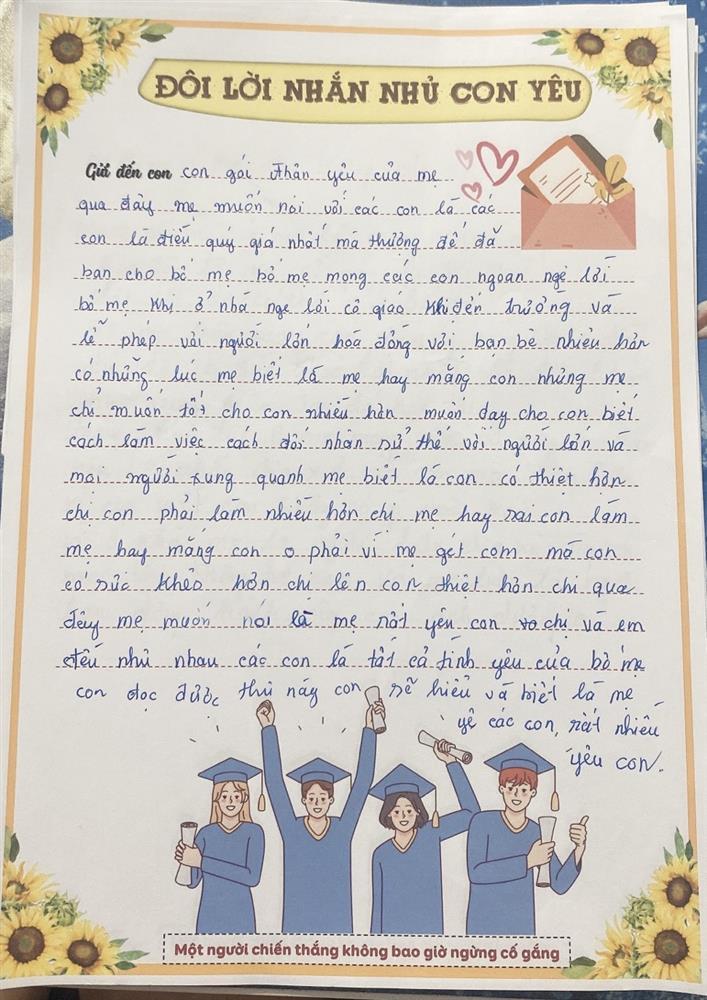 ĐÔI LỜI NHẮN NHỦ CON YÊU
Gửi đến con con gái thân yêu của mẹ
qua đây mẹ muốn nói với các con là các
con là điều quý giá nhất mà thượng đế đã
ban cho bố mẹ bố mẹ mong các con ngoan nge lời
bố mẹ khi ở nhà nge lời cô giáo khi đến trường và
lễ phép với người lớn hoà đồng với bạn bè nhiều hơn
có những lúc mẹ biết là mẹ hay mắng con nhưng mẹ
chỉ muốn tốt cho con nhiều hơn muốn dạy cho con biết
cách làm việc cách đối nhân sử thế với người lớn và
mọi người xung quanh mẹ biết là con có thiệt hơn
chị con phải làm nhiều hơn chị mẹ hay sai con làm
mẹ hay mắng con o phải vì mẹ gét com mà con
có sức khẻo hơn chị lên con thiệt hơn chị qua
đêy mẹ muốn nói là mẹ rất yêu con chị và em
đều như nhau các con là tất cả tình yêu của bố mẹ
con đọc được thư này con sẽ hiểu và biết là mẹ
yê các con, rất nhiều
yêu con.
Một người chiến thắng không bao giờ ngừng cố gắng